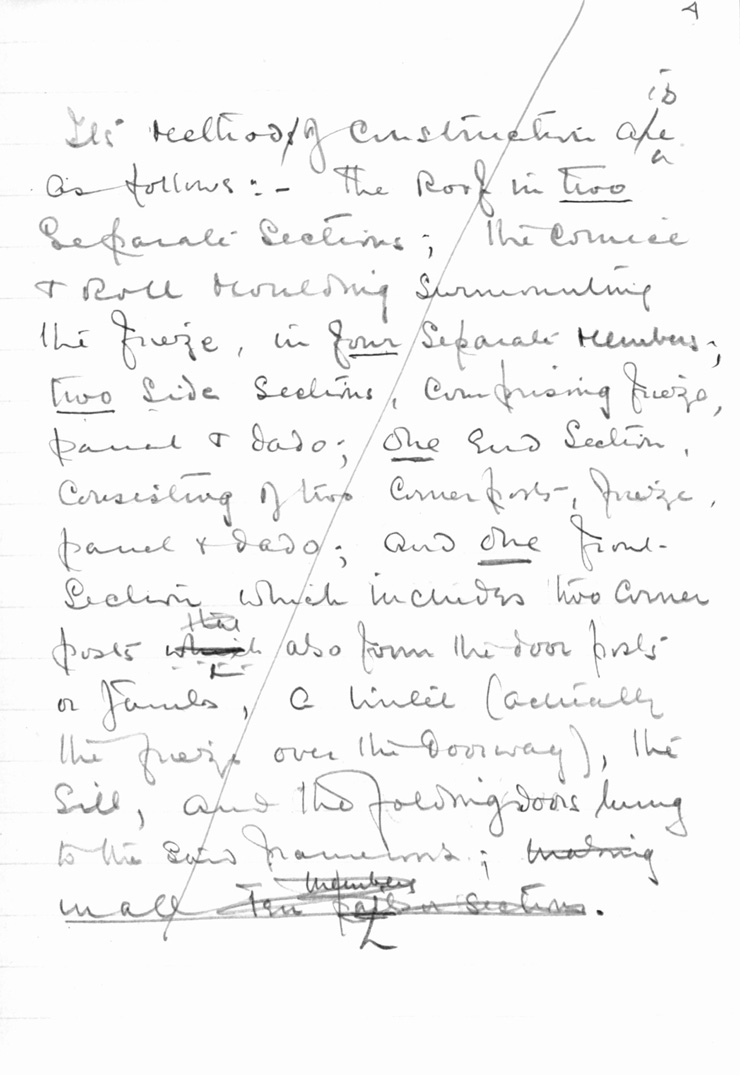 4
is
Its Method/s of Construction are
as follows:- The Roof in two
Separate Sections; the Cornice
& Roll Moulding Surmounting
the frieze, in four Separate Members;
two Side Sections, Comprising frieze,
panel & dado; one End Section,
Consisting of two Corner posts, frieze,
panel & dado; and one front
Section which includes two Corner
that
posts which also form the door posts
or Jambs, a lintel (actually
the frieze over the Doorway), the
Sill, and the folding doors hung
to the said framework; making
members
in all Ten sections.